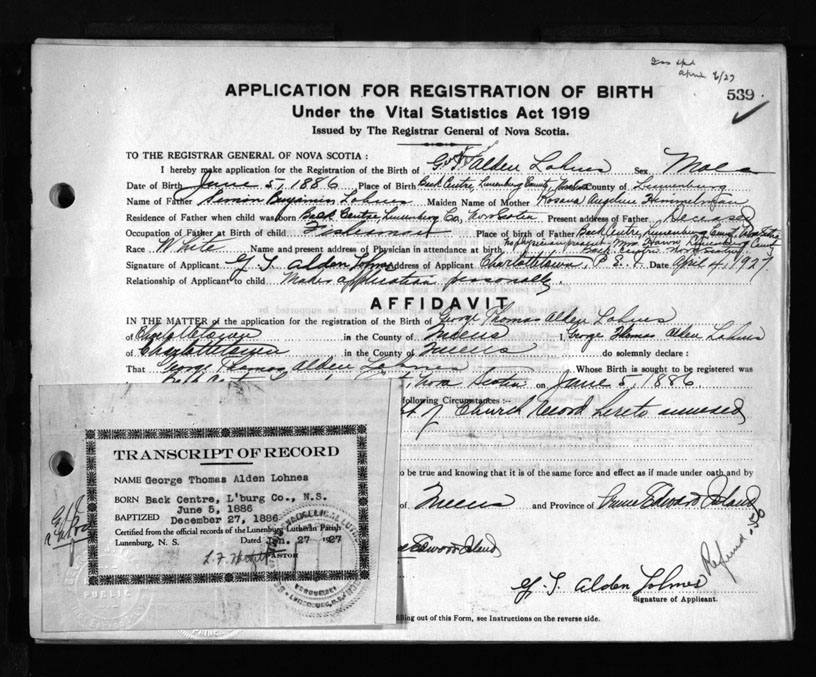 April 6/27
539
APPLICATION FOR REGISTRATION OF BIRTH
Under the Vital Statistics Act 1919
Issued by The Registrar General of Nova Scotia.
TO THE REGISTRAR GENERAL OF NOVA SCOTIA :
I hereby make application for the Registration of the Birth of G. T. Alden Lohnes Sex Male
Date of Birth June 5, 1886 Place of Birth Back Centre, Lunenburg County, County of Lunenburg
Name of Father Simon Benjamin Lohnes Maiden Name of Mother Rosana Himmelman
Residence of Father when child was born Back Centre, Lunenburg Co., Nova Scotia Present address of Father Deceased
Occupation of Father at Birth of child Fisherman Place of birth of Father Back Centre, Lunenburg County, Nova Scotia
Race White Name and present address of Physician in attendance at birth, No physician present. Mrs. Lunenburg County
Back Centre Nova Scotia
Signature of Applicant G T Alden Lohnes Address of Applicant Charlottetown, P. E. I. Date April 4, 1927
Relationship of Applicant to child Makes application personally.
AFFIDAVIT
IN THE MATTER of the application for the registration of the Birth of George Thomas Alden Lohnes
of Charlottetown in the County of Queens I, George Thomas Alden Lohnes
of Charlottetown in the County of Queens do solemnly declare :
That George Thomas Alden Lohnes Whose Birth is sought to be registered was
Nova Scotia on June 5, 1886.
following Circumstances:-
of Church Record hereto annexed
to be true and knowing that it is of the same force and effect as if made under oath and by
of Queens and Province of Prince Edward Island
Edward Island
Refund .50
G T Alden Lohnes
Signature of Applicant.
filling out of this Form, see Instructions on the reverse side.
TRANSCRIPT OF RECORD
NAME George Thomas Alden Lohnes
BORN Back Centre, L'burg Co., N.S.
June 5, 1886
BAPTIZED December 27, 1886
Certified from the official records of the Lunenburg Lutheran Parish
Lunenburg, N. S. Dated Jan. 27 '27
PASTOR
PUBLIC